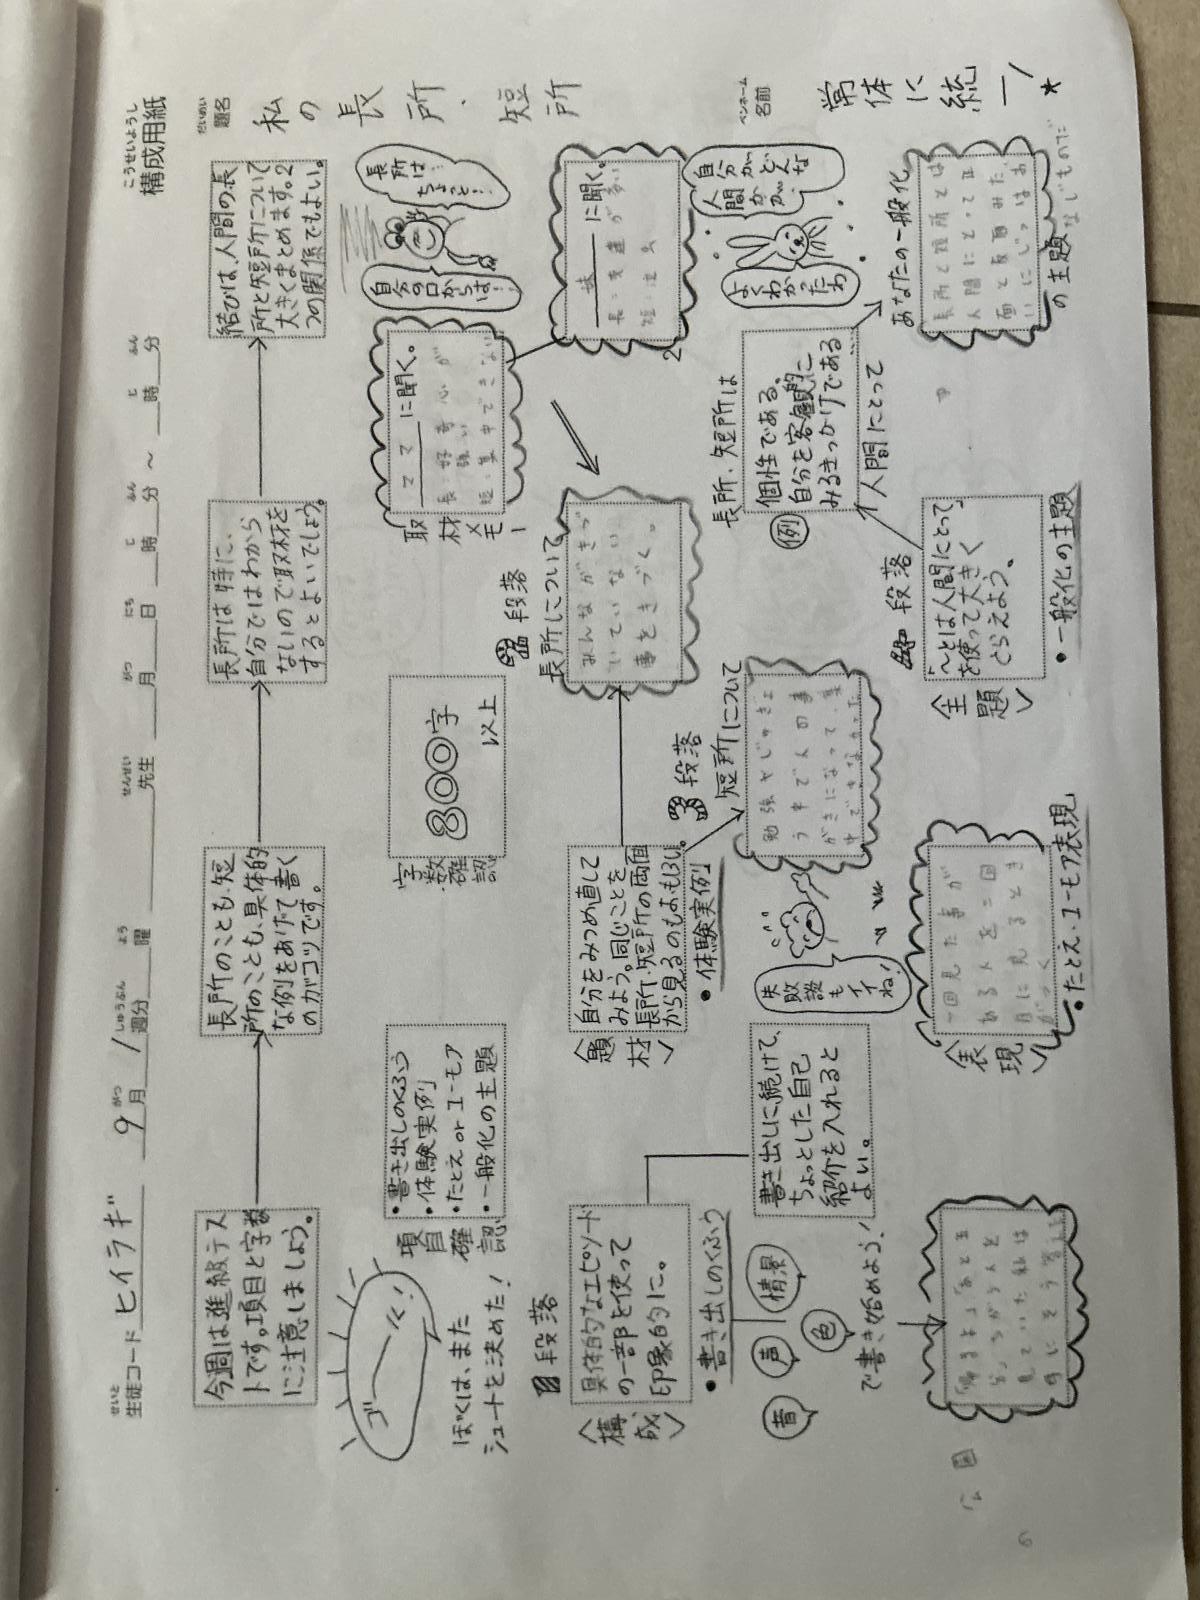 構成用紙
こうせいようし
生徒コード ヒイラギ 9月 1週分 曜 先生 月 日 時 分 ～ 時 分
題名 私の長所、短所
ペンネーム
名前
常体に統一！★
今週は進級テス
トです。項目と字数
に注意しましょう。
長所のことも、短
所のことも、具体的
な例をあげて書く
のがコツです。
長所は特に、
自分ではわから
ないので取材を
するとよいでしょう。
結びは、人間の長
所と短所について
大きくまとめます。2
つの関係でもよい。
ゴーール！
ぼくは、また
シュートを決めた！
項目確認
・書き出しのくふう
・体験実例
・たとえorユーモア
・一般化の主題
字数確認
800字
以上
取材メモー
ママに聞く。
長：好奇心が
強い
短：集中できない
自分の口からは…！
長所は…
ちょっと…！
妹に聞く。
長：友達が多い
2
段落
〈構成〉
具体的なエピソード
の一部を使って
印象的に。
・書き出しのくふう
音
声
色
情景
で書き始めよう！
書き出しに続けて、
ちょっとした自己
紹介を入れると
よい。
〈題材〉
自分をみつめ直して
みよう。同じことを
長所・短所の両面
から見るのもおもしろい。
・体験実例
失敗談も
イイね！
段落
長所について
みんながきづ
いていない
事をきづく。
段落
短所について
勉強やじゅぎょ
う中で人の事
がきになって、集
中できなかった
長所、短所は
例
個性である。
自分を客観的に
みるきっかけである
…
人間にとって
よくわかったわ
自分がどんな
人間かが…
公園
〈表現〉
一回見た事が
ある人を二回
目に見るとき
がつく
・たとえ、ユーモア表現
段落
〈主題〉
「～とは人間にとって」
を使って大きく
とらえよう。
・一般化の主題
あなたの一般化
の主題
長所と短所とは
人間にとって正
面と反面みた
いにじつはお
なじものだ
6